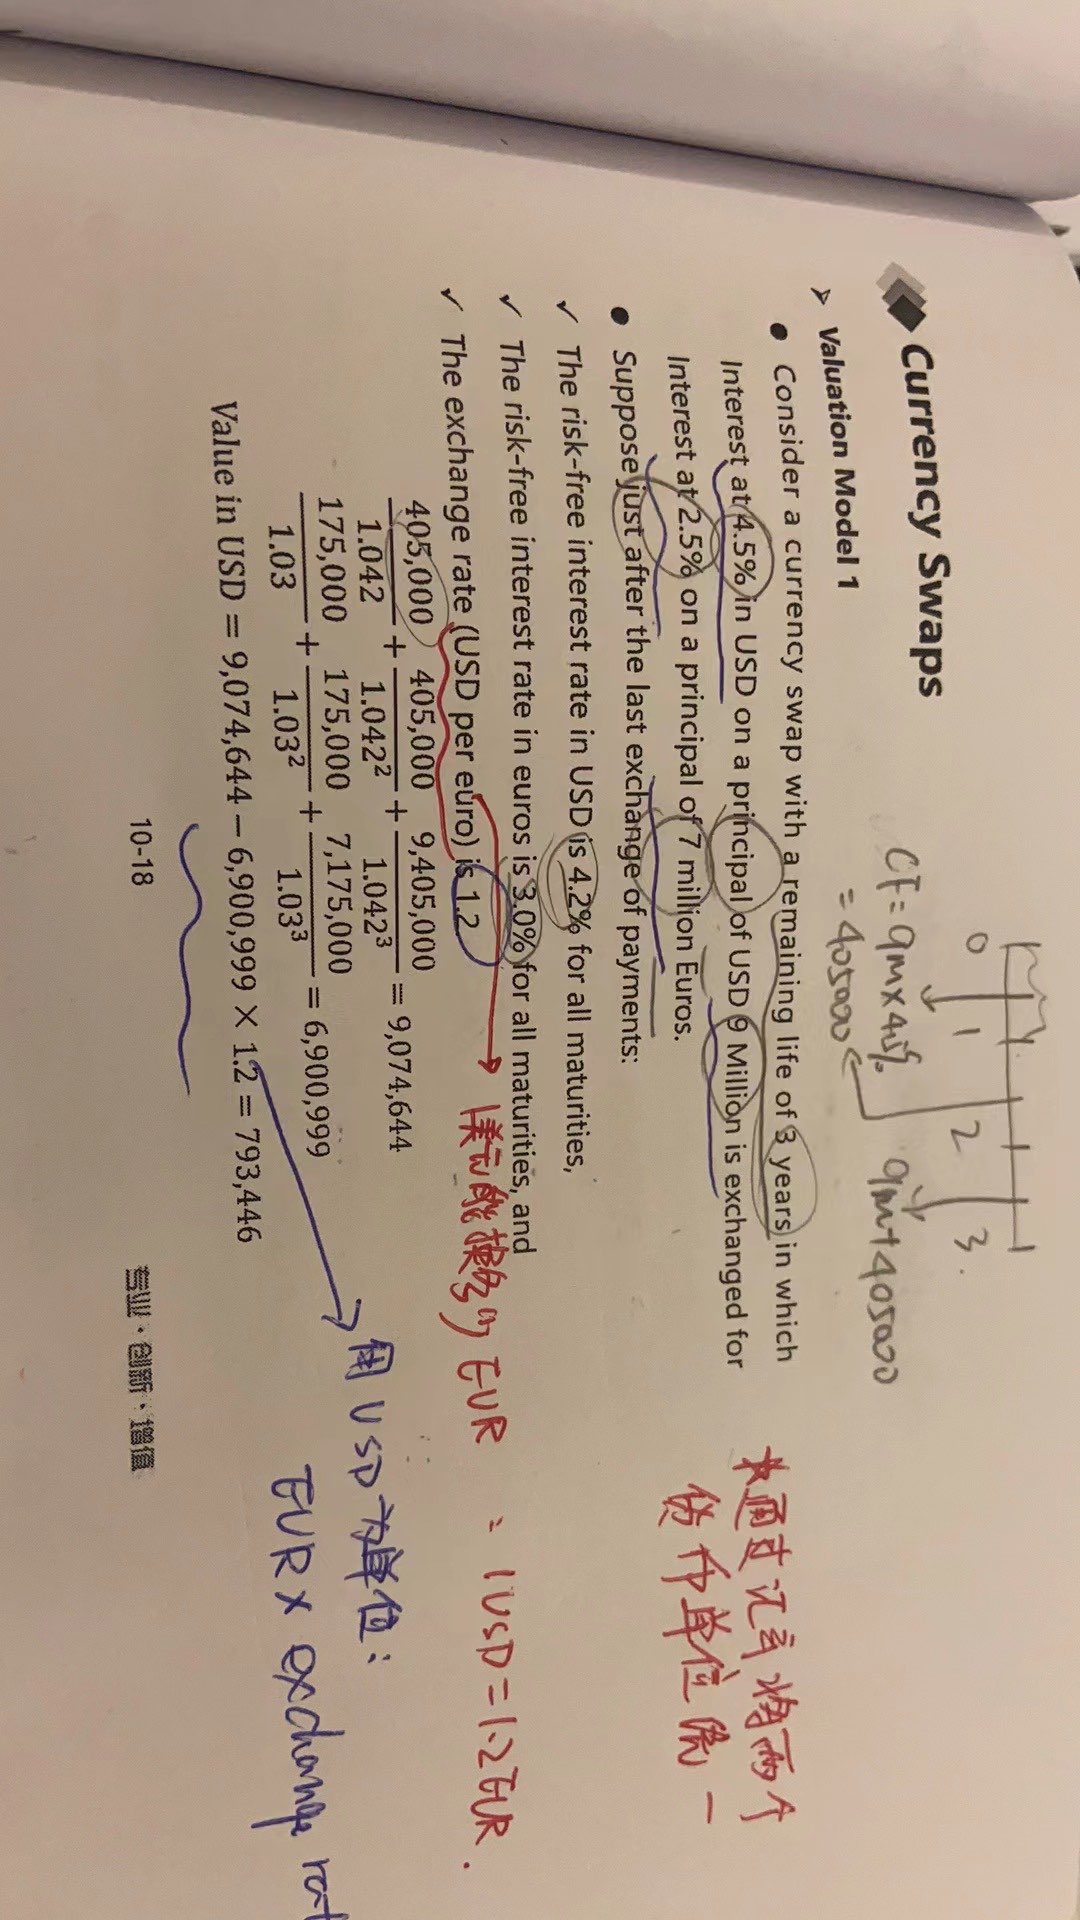 Currency Swaps
0 1 2 3.
CF = 9m×4.5%
= 405000
9m+405000
➢ Valuation Model 1
● Consider a currency swap with a remaining life of 3 years in which
Interest at 4.5% in USD on a principal of USD 9 Million is exchanged for
Interest at 2.5% on a principal of 7 million Euros.
★通过汇率将两个
货币单位统一
● Suppose just after the last exchange of payments:
✓ The risk-free interest rate in USD is 4.2% for all maturities,
✓ The risk-free interest rate in euros is 3.0% for all maturities, and
✓ The exchange rate (USD per euro) is 1.2
美元能换多少 EUR
: 1USD=1.2EUR.
405,000/1.042 + 405,000/1.042² + 9,405,000/1.042³ = 9,074,644
175,000/1.03 + 175,000/1.03² + 7,175,000/1.03³ = 6,900,999
Value in USD = 9,074,644 − 6,900,999 × 1.2 = 793,446
用 USD为单位:
EUR × exchange rat
10-18
专业·创新·增值